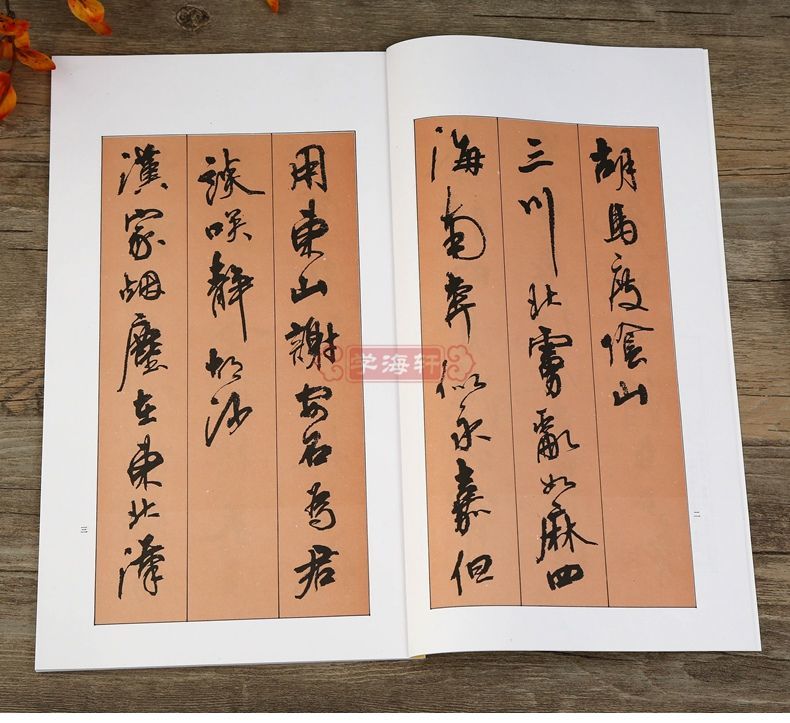 胡馬度陰山
三川北虜亂如麻四
海南奔似永嘉但
二
用東山謝安石為君
談咲靜胡沙
漢家烟塵在東北漢
三
学海轩